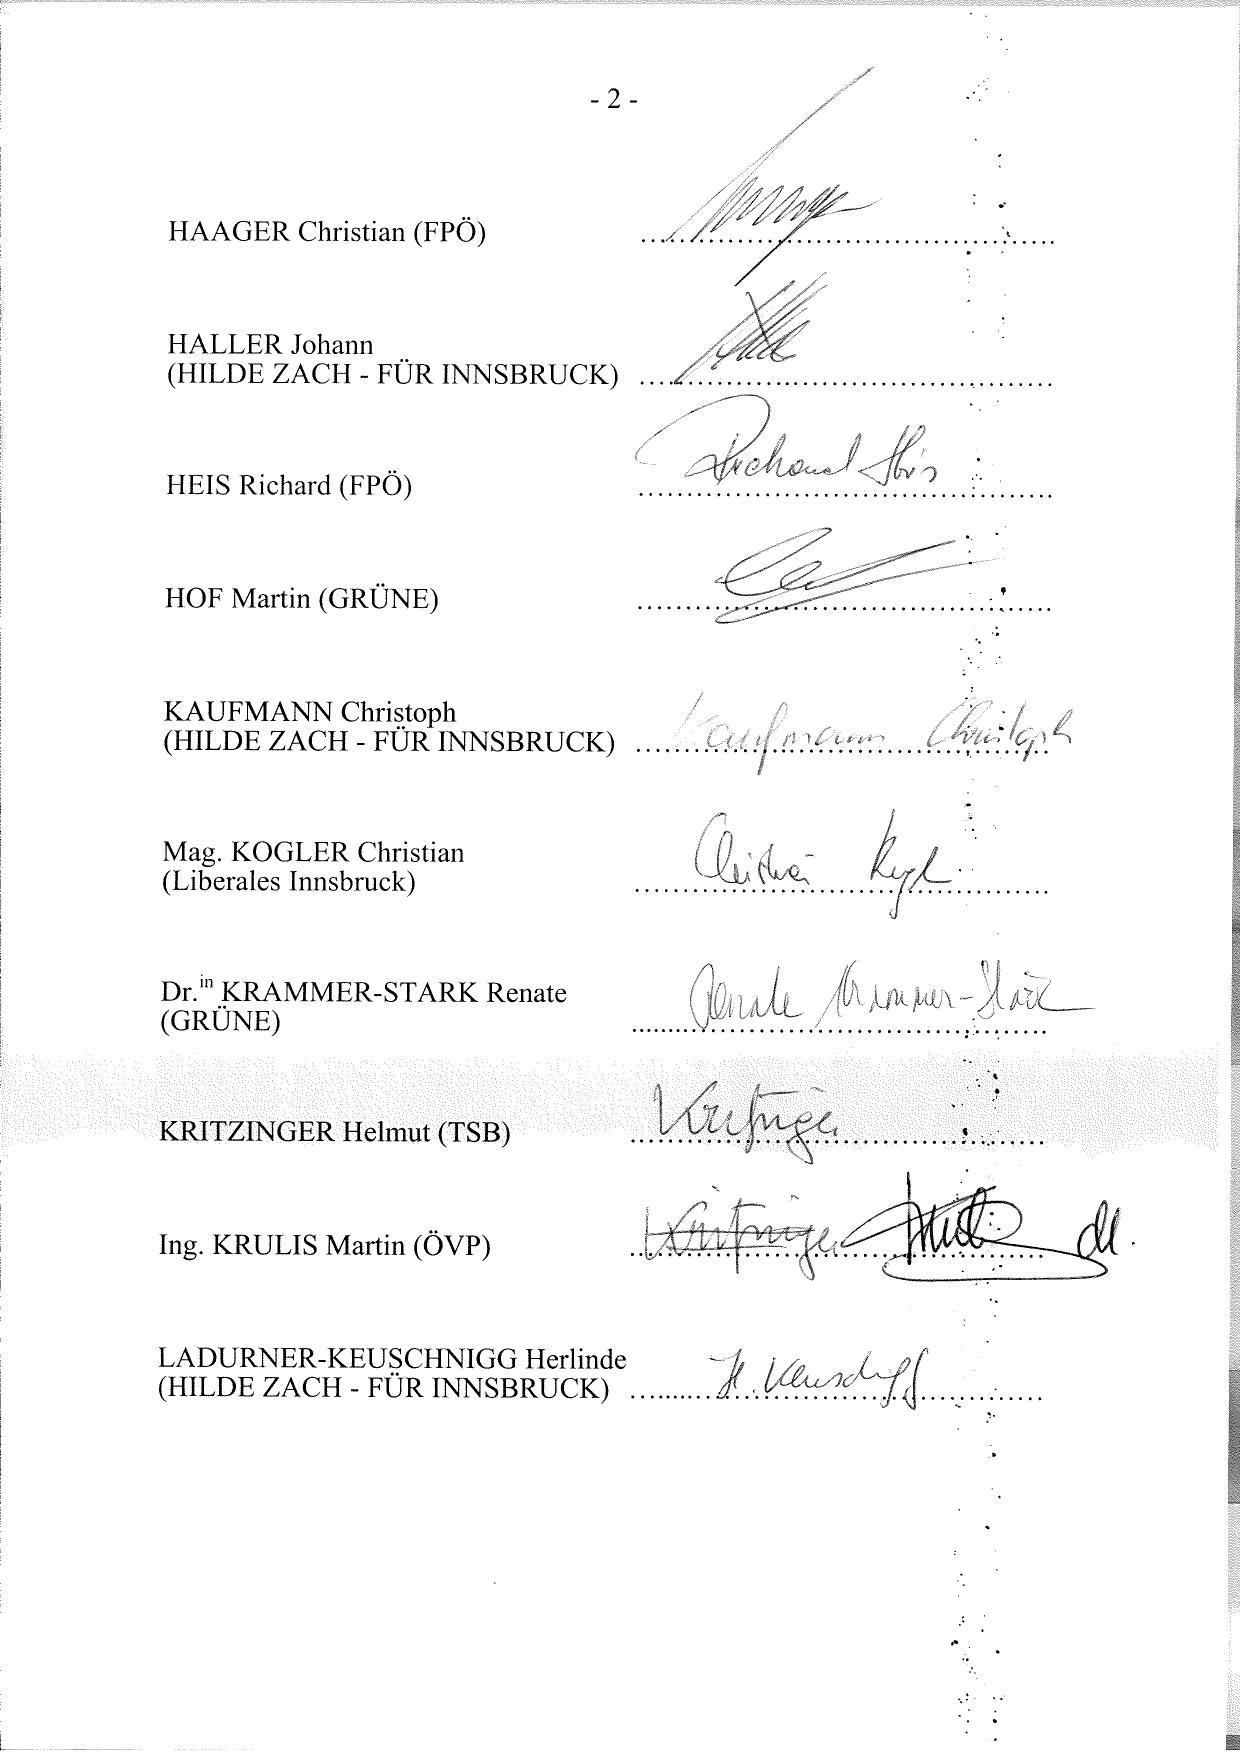 - 2 -
HAAGER Christian (FPÖ) ........................................
HALLER Johann
(HILDE ZACH - FÜR INNSBRUCK) ........................................
HEIS Richard (FPÖ) Richard Heis
HOF Martin (GRÜNE) ........................................
KAUFMANN Christoph
(HILDE ZACH - FÜR INNSBRUCK) Kaufmann Christoph
Mag. KOGLER Christian
(Liberales Innsbruck) Christian Kogl
Dr.in KRAMMER-STARK Renate Renate Krammer-Stark
(GRÜNE) ........................................
KRITZINGER Helmut (TSB) Kritzinger
Ing. KRULIS Martin (ÖVP) Kritzinger
LADURNER-KEUSCHNIGG Herlinde
(HILDE ZACH - FÜR INNSBRUCK) H. Keuschnigg